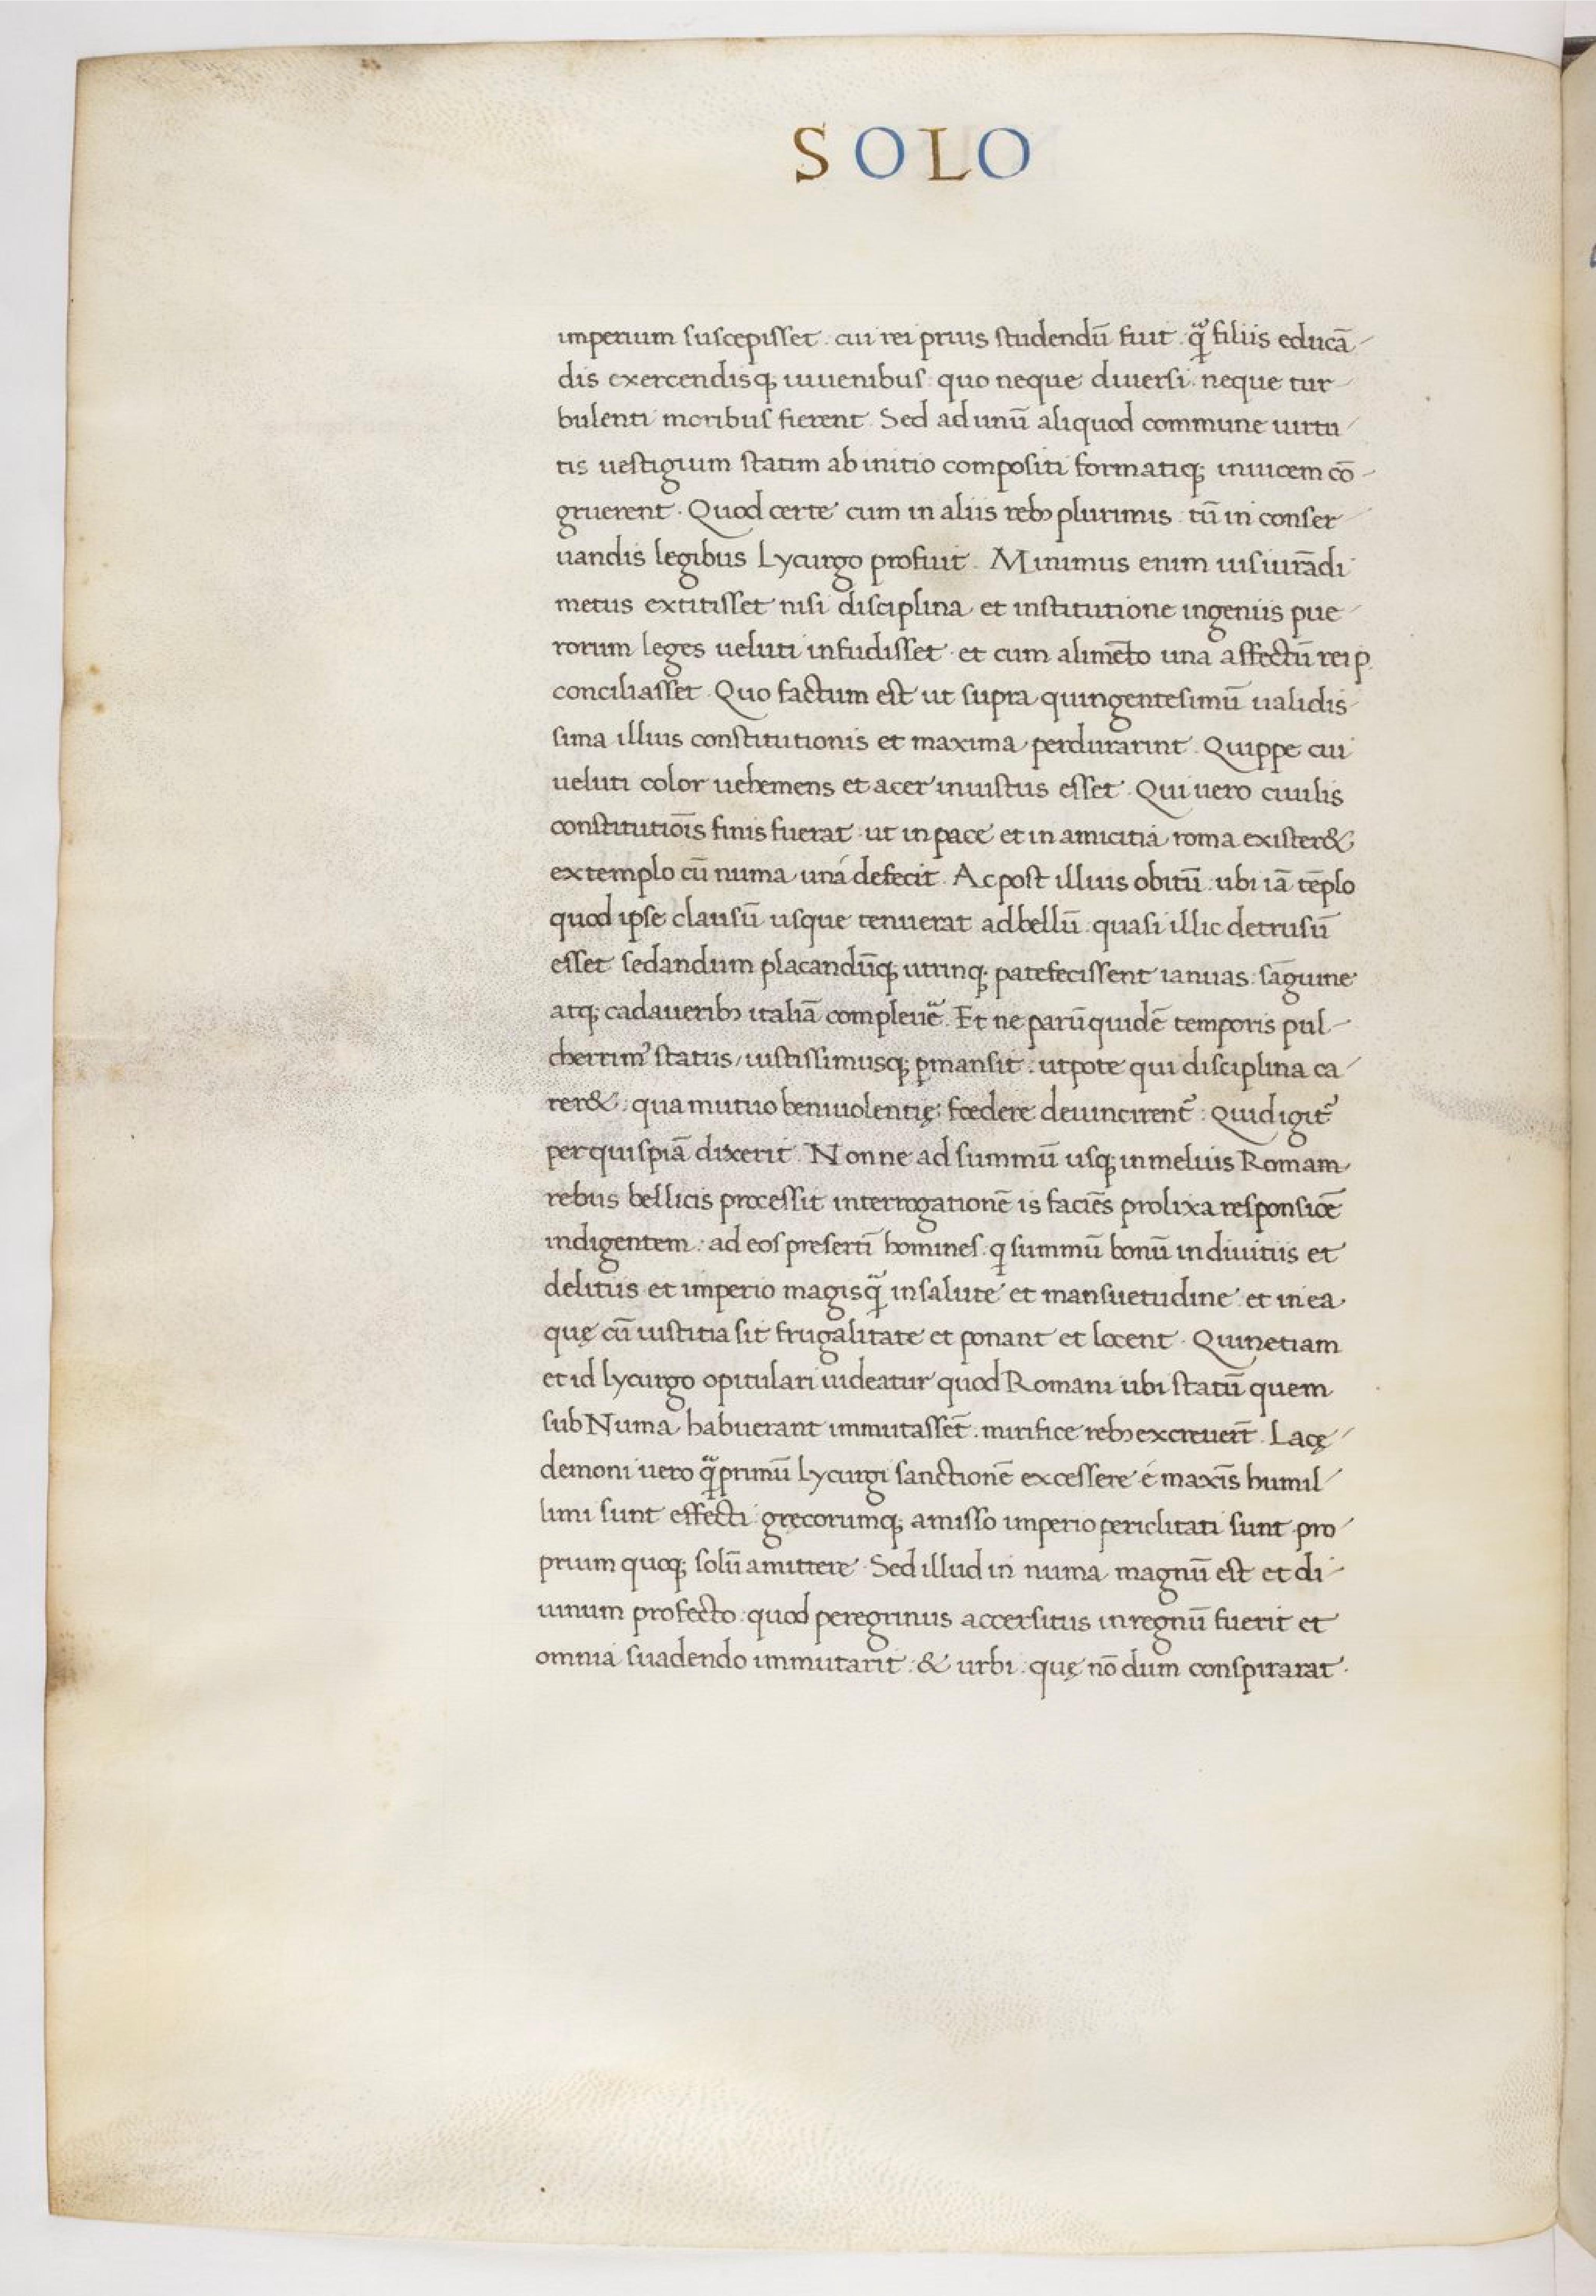 SOLO
imperium suscepisset. cui rei prius studendū fuit. q̄ filiis educā-
dis exercendisq; iuuenibus: quo neque diuersi. neque tur-
bulenti moribus fierent. Sed ad unū aliquod commune uirtu-
tis uestigium statim ab initio compositi formatiq; inuicem cō-
gruerent. Quod certe cum in aliis reb; plurimis. tū in conser-
uandis legibus Lycurgo profuit. Minimus enim iusiurādi
metus extitisset nisi disciplina et institutione ingeniis pue-
rorum leges ueluti infudisset. et cum alimēto una affectū rei p.
conciliasset. Quo factum est ut supra quingentesimū ualidis-
sima illius constitutionis et maxima perdurarint. Quippe cui
ueluti color uehemens et acer inustus esset. Qui uero ciuilis
constitutiōis finis fuerat ut in pace et in amicitia roma exister&
extemplo cū numa uná defecit. Ac post illius obitū. ubi iā tēplo
quod ipse clausū usque tenuerat ad bellū. quasi illic detrusū
esset sedandum placandūq; utrinq; patefecissent ianuas. sāguine
atq; cadauerib; italiā compleuē. Et ne parū quidē temporis pul-
cherrim⁹ status/ iustissimusq; p̱mansit. utpote qui disciplina ca-
rer&. qua mutuo beniuolentię foedere deuincirent᷑. Quid igit᷑
perquispiā dixerit. Nonne ad summū usq; in melius Romam
rebus bellicis processit interrogationē is faciēs prolixa responsiōe
indigentem. ad eos presertī homines. q summū bonū in diuitiis et
delitiis et imperio magis q̄ in salute et mansuetudine. et in ea
quę cū iustitia sit frugalitate et ponant et locent. Quin etiam
et id lycurgo opitulari uideatur quod Romani ubi statū quem
sub Numa habuerant immutassēt. mirifice reb; excreuerīt. Lacę-
demoni uero q̄primū Lycurgi sanctionē excessere é maxīs humil-
limi sunt effecti. gręcorumq; amisso imperio periclitati sunt pro-
prium quoq; solū amittere. Sed illud in numa magnū est et di-
uinum profecto. quod peregrinus accersitus in regnū fuerit et
omnia suadendo immutarit. & urbi. quę nō dum conspirarat.